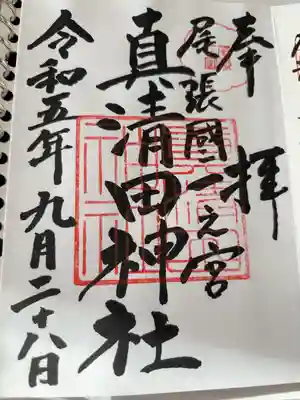 奉拝
尾張國一之宮
真清田神社
令和五年九月二十八日